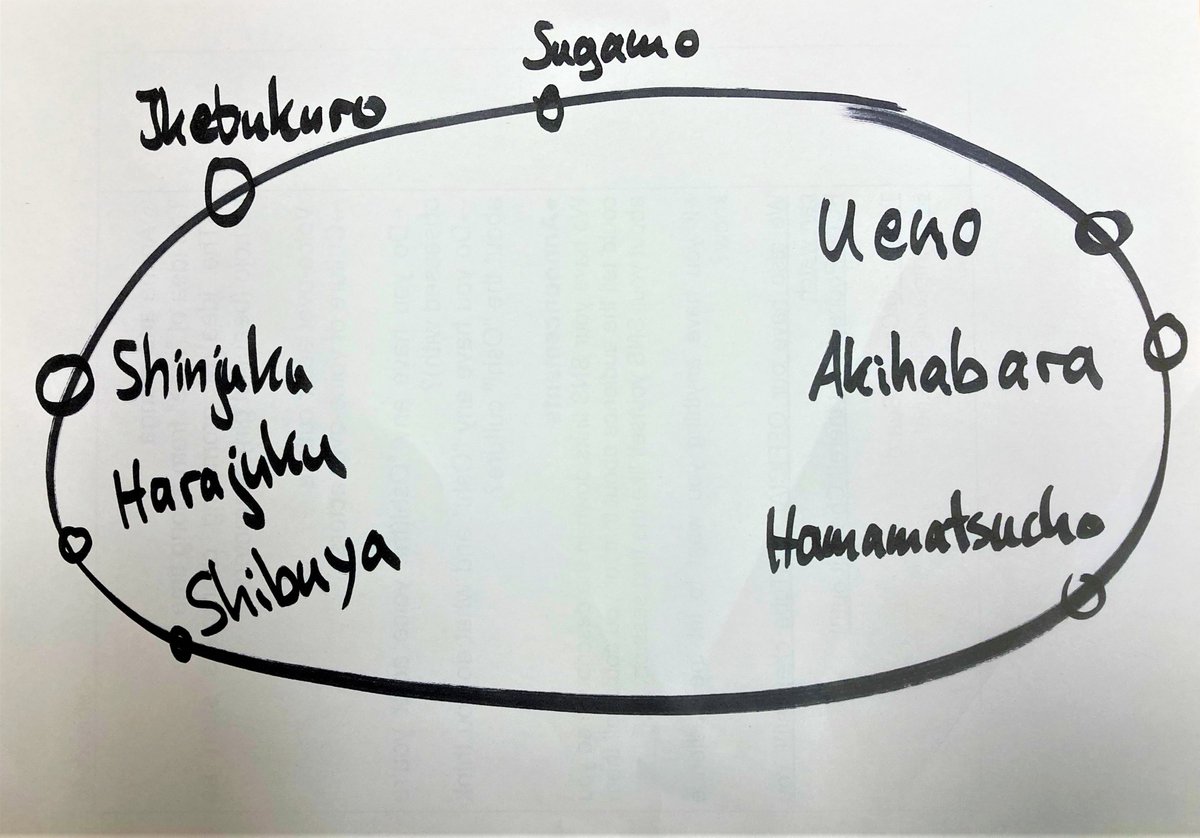 Sugamo
Ikebukuro
Ueno
Shinjuku
Akihabara
Harajuku
Hamamatsucho
Shibuya